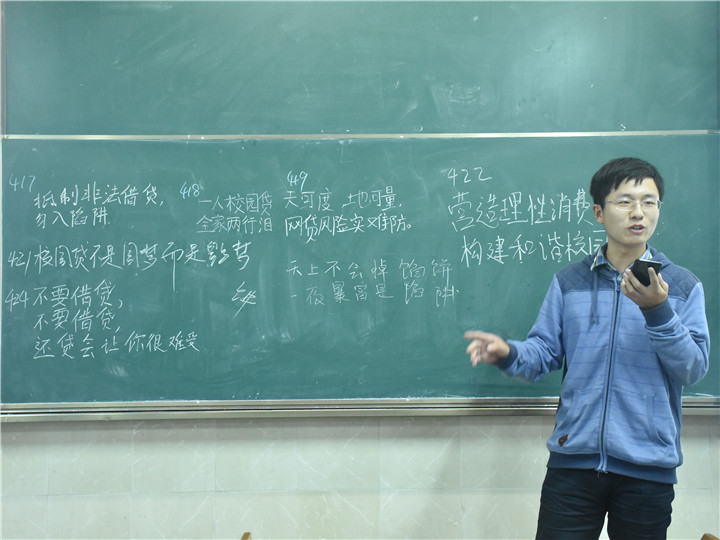 417
抵制非法借贷,
勿入陷阱
418
一人校园贷
全家两行泪
419
天可度,地可量,
网贷风险实难防。
422
营造理性消费
构建和谐校园
421校园贷不是圆梦而是噩梦
天上不会掉馅饼
一夜暴富是陷阱
424不要借贷,
不要借贷,
还贷会让你很难受